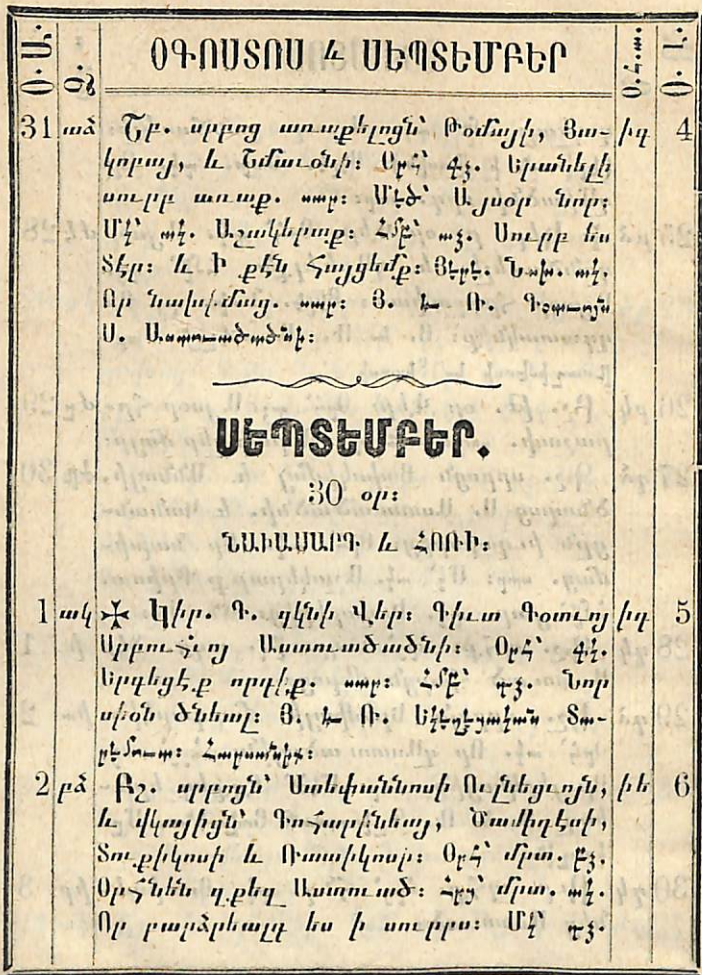 ՕԳՈՍՏՈՍ և ՍԵՊՏԵՄԲԵՐ
31 աձ Շբ. սրբոց առաքելոցն՝ Թօմայի, Յա- իդ 4
կոբայ, և Շմաւօնի: Օրհ՝ գչ. Երանելի
սուրբ առաք. սար: Մէծ՝ Այսօր նոր:
Մկ՝ ակ. Աշակերաք: Համբ՝ աչ. Սուրբ ես
Տէր: և Ի քէն Հայցեմք:
Որ նախիմաց. սար: Յ. և Ռ. Գօտւոյն
Ս. Աստուածածնի:
ՍԵՊՏԵՄԲԵՐ.
30 օր:
ՆԱՒԱՍԱՐԴ և ՀՈՌԻ:
1 ակ ✠ Կիր. Գ. զկնի Վեր: Գիւտ Գօտւոյ իդ 5
Սրբուհւոյ Աստուածածնի: Օրհ՝ գկ.
Երգեցէք որդիք. սար: Հմբ՝ դչ. Նոր
սիօն ծնեալ: Յ. և Ռ. Եկեղեցական Տա-
րեմուտ:
2 բձ Բշ. սրբոցն՝ Ստեփաննոսի Ուլնեցւոյն, իե 6
և վկայիցն՝ Գոհարինեայ, Ծամիդէսի,
Տուքիկոսի և Ռատիկոսի: Օրհ՝ մրտ. բչ.
Օրհնեն զքեզ Աստուած: Հրց՝ մրտ. ակ.
Որ բարձրեալդ ես ի սուրբս: Մկ՝ դչ.